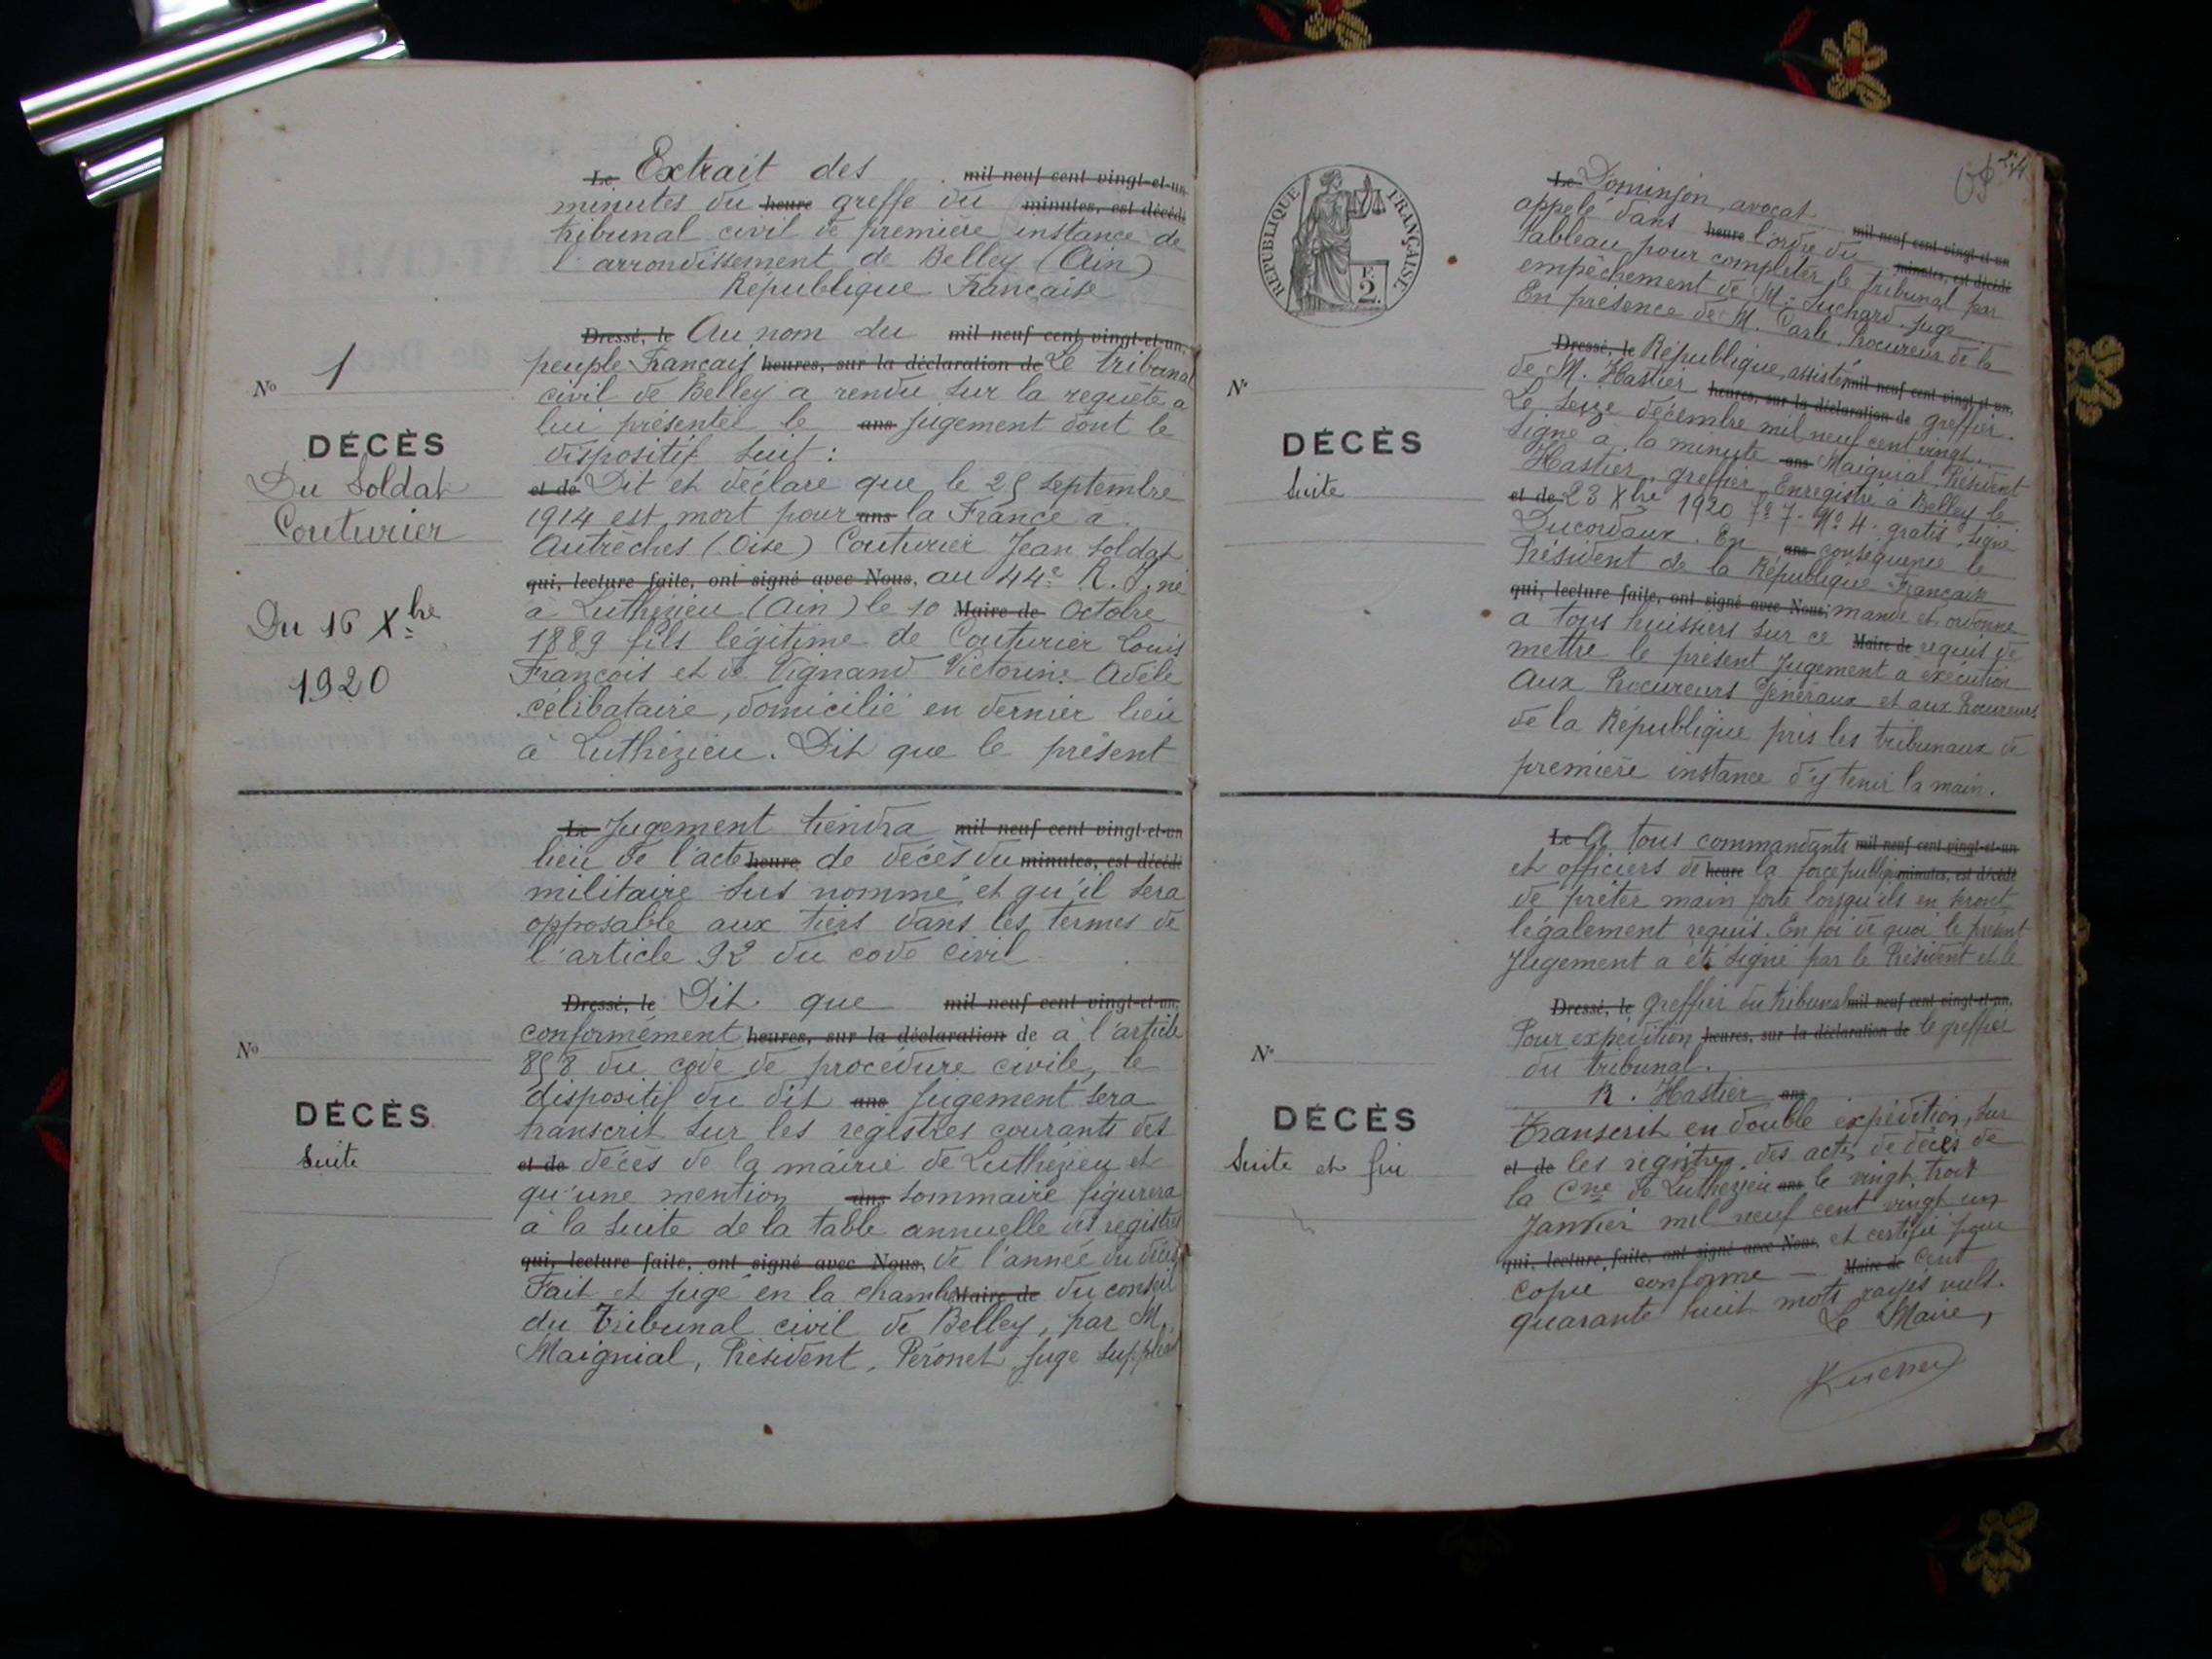 Le Extrait des mil neuf cent vingt-et-un
minutes du heure greffe du minutes, est décédé
tribunal civil de première instance de
l'arrondissement de Belley (Ain)
République Française
Dressé, le Au nom du mil neuf cent vingt-et-un,
peuple Français heures, sur la déclaration de Le tribunal
civil de Belley a rendu sur la requête a
lui présentée le ans jugement dont le
dispositif suit :
et de Dit et déclare que le 25 septembre
1914 est mort pour ans la France à
Autrèches (Oise) Couturier Jean soldat
qui, lecture faite, ont signé avec Nous, au 44e R. I. né
à Luthézieu (Ain) le 10 Maire de Octobre
1889 fils légitime de Couturier Louis
François et de Vignand Victorine Adèle
célibataire, domicilié en dernier lieu
à Luthézieu. Dit que le présent
No 1
DÉCÈS
Du Soldat
Couturier
Du 16 Xbre
1920
Le Jugement tiendra mil neuf cent vingt-et-un
lieu de l'acte heure de décès du minutes, est décédé
militaire sus nommé et qu'il sera
opposable aux tiers dans les termes de
l'article 92 du code civil
Dressé, le Dit que mil neuf cent vingt-et-un,
conformément heures, sur la déclaration de à l'article
858 du code de procédure civile, le
dispositif du dit ans jugement sera
transcrit sur les registres courants des
et de décès de la mairie de Luthézieu et
qu'une mention ans sommaire figurera
à la suite de la table annuelle des registres
qui, lecture faite, ont signé avec Nous, de l'année du décès
Fait et jugé en la chambre Maire de du conseil
du Tribunal civil de Belley, par M.
Maignial, Président, Péronet juge suppléant
No
DÉCÈS
Suite
RÉPUBLIQUE FRANÇAISE
F.
2.
Le Dominjon, avocat mil neuf cent vingt-et-un
appelé dans heure l'ordre du minutes, est décédé
tableau, pour compléter le tribunal par
empêchement de M. Luchard. juge
En présence de M. Carle Procureur de la
Dressé, le République, assistés mil neuf cent vingt-et-un,
de M. Hastier heures, sur la déclaration de greffier.
Le seize décembre mil neuf cent vingt.
Signé à la minute ans Maignial Président
Hastier, greffier Enregistré à Belley le
et de 23 Xbre 1920 fo 7. No 4. gratis, signé
Ducordaux. En ans conséquence le
Président de la République Française
qui, lecture faite, ont signé avec Nous, mande et ordonne
a tous huissiers sur ce Maire de requis de
mettre le présent Jugement à exécution
Aux Procureurs Généraux et aux Procureurs
de la République près les tribunaux de
première instance d'y tenir la main.
No
DÉCÈS
Suite
Le A tous commandants mil neuf cent vingt-et-un
et officiers de heure la force publique minutes, est décédé
de prêter main forte lorsqu'ils en seront
légalement requis. En foi de quoi le présent
Jugement a été signé par le Président et le
Dressé, le greffier du tribunal mil neuf cent vingt-et-un,
Pour expédition heures, sur la déclaration de le greffier
du tribunal.
R. Hastier ans
Transcrit en double expédition, sur
et de les registres des actes de décès de
la Cne de Luthézieu ans le vingt trois
Janvier mil neuf cent vingt un
qui, lecture faite, ont signé avec Nous, et certifié pour
copie conforme - Maire de Cent
quarante huit mots rayés nuls.
Le Maire,
No
DÉCÈS
Suite et fin